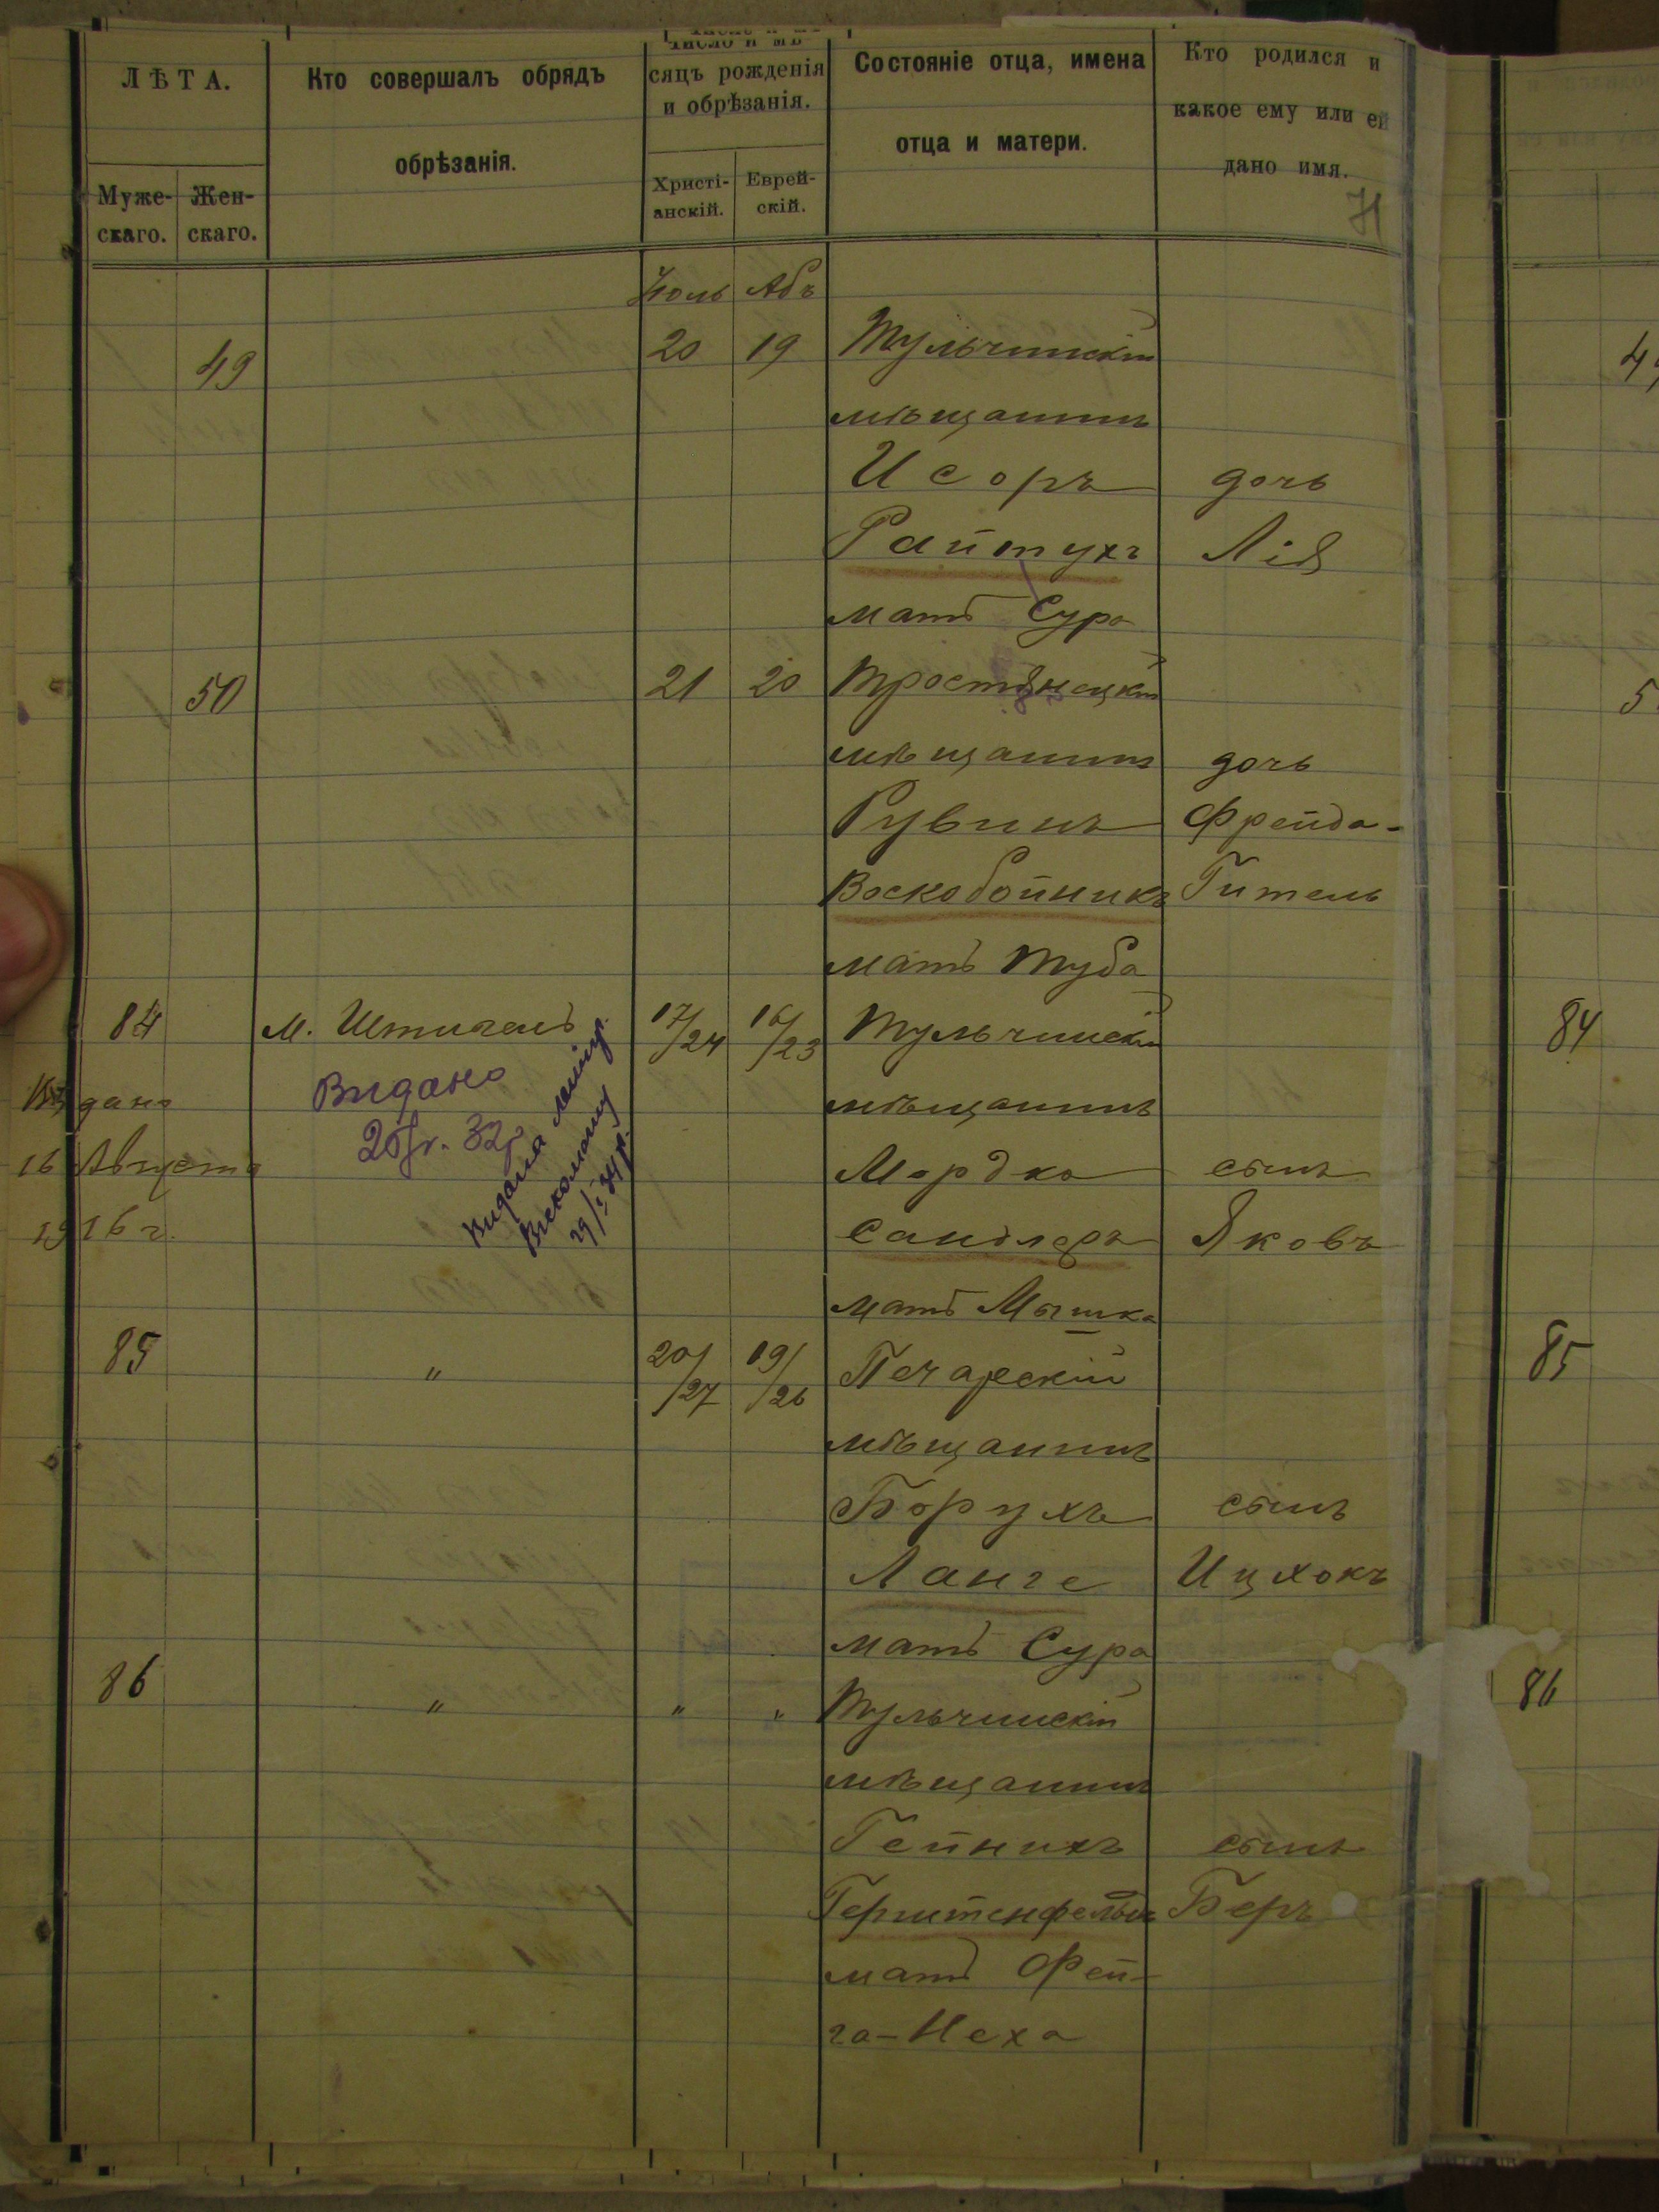 ЛѢТА.
Муже-
скаго.
Жен-
скаго.
Кто совершалъ обрядъ
обрѣзанія.
Число и мѣ-
сяцъ рожденія
и обрѣзанія.
Христі-
анскій.
Еврей-
скій.
Состояніе отца, имена
отца и матери.
Кто родился и
какое ему или ей
дано имя.
Июль Абъ
49 20 19 Тульчинскій
мѣщанинъ
Исоръ дочь
Райтухъ Лія
мать Сура
50 21 20 Тростянецкій
мѣщанинъ дочь
Рувинъ Фрейда-
Воскобойникъ Гитель
мать Туба
84 М. 17/24 16/23 Тульчинскій 84
Выдано Видано мѣщанинъ
16 Августа
Мордко сынъ
1916 г. Сандлеръ Яковъ
мать Мышка
85 " 20/27 19/26 Печарскій 85
мѣщанинъ
Борухъ сынъ
Ланге Ицхокъ
мать Сура
86 " " " Тульчинскій 86
мѣщанинъ
Гейнихъ сынъ
Герштенфельдъ Беръ
мать Фей-
га-Неха